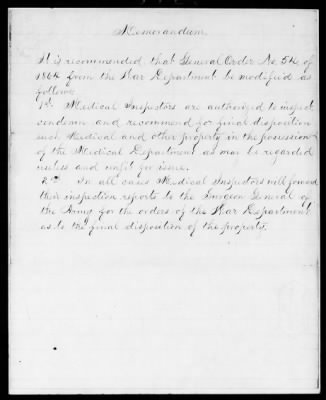 Memorandum
It is recommended that General Order No 54, of
1864 from the War Department be modified as
follows
1st Medical Inspectors are authorized to inspect
condemn and recommend for final disposition
such Medical and other property in the possession
of the Medical Department as may be regarded
useless and unfit for issue.
2nd In all cases Medical Inspectors will forward
their inspection reports to the Surgeon General of
the Army for the orders of the War Department
as to the final disposition of the property.